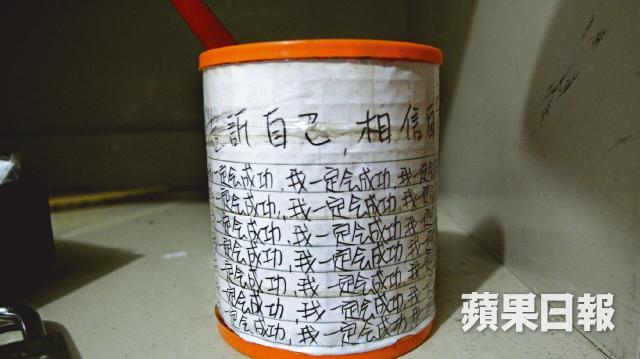 訴自己,相信自
一定会成功,我一定会成功,我一定
一定会成功,我一定会成功,我一定
一定会成功,我一定会成功,我一
一定会成功,我一定会成功,我一
一定会成功,我一定会成功,我
一定会成功,我一定会成功,我
一定会成功,我一定会成功,我
蘋果日報